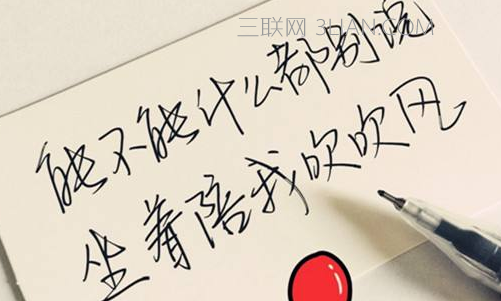 三联网 3LIAN.COM
能不能什么都别说
坐着陪我吹吹风